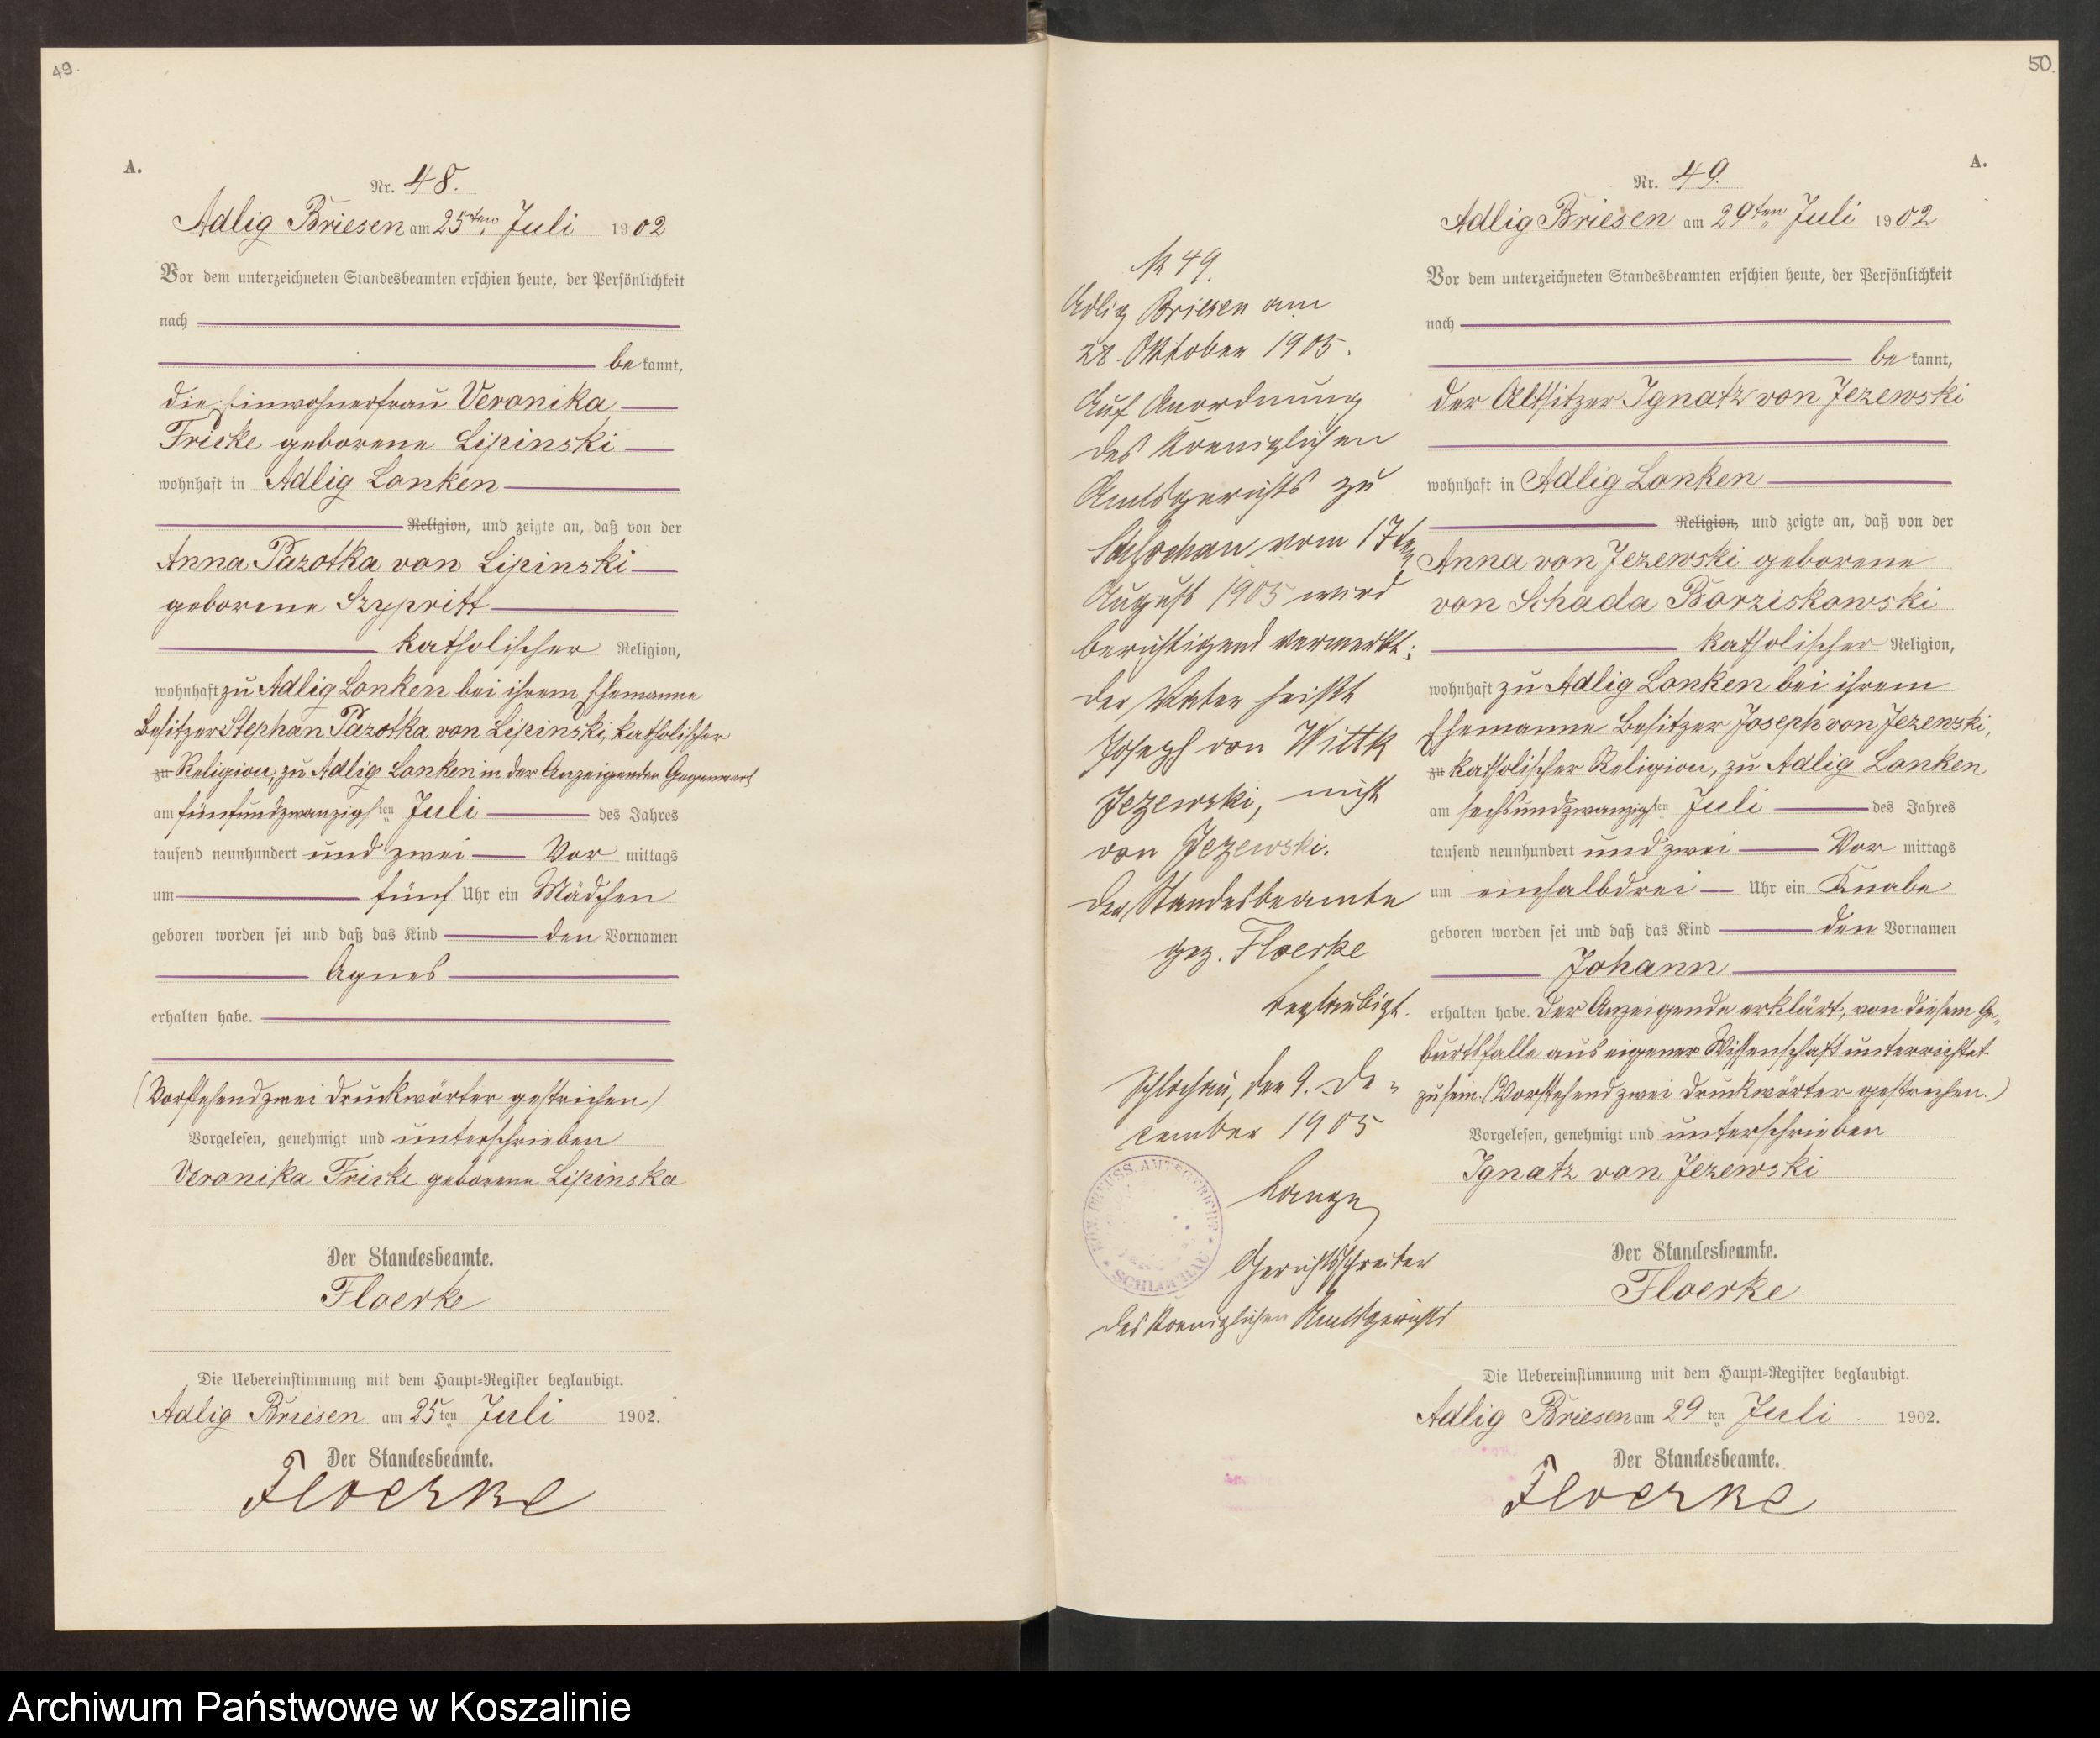 49.
A.
Nr. 48.
Adlig Briesen am 25ten Juli 1902
Vor dem unterzeichneten Standesbeamten erschien heute, der Persönlichkeit
nach
be kannt,
die Einwohnerfrau Veronika
Fricke geborene Lipinski
wohnhaft in Adlig Lanken
Religion, und zeigte an, daß von der
Anna Pazotka von Lipinski
geborene Szypritt
katholischer Religion,
wohnhaft zu Adlig Lanken bei ihrem Ehemanne
Besitzer Stephan Pazotka von Lipinski, katholischer
zu Religion, zu Adlig Lanken in der Anzeigenden Gegenwart
am fünfundzwanzigsten Juli des Jahres
tausend neunhundert und zwei Vor mittags
um fünf Uhr ein Mädchen
geboren worden sei und daß das Kind den Vornamen
Agnes
erhalten habe.
(Vorstehend zwei Druckwörter gestrichen)
Vorgelesen, genehmigt und unterschrieben
Veronika Fricke geborene Lipinska
Der Standesbeamte.
Floerke
Die Uebereinstimmung mit dem Haupt-Register beglaubigt.
Adlig Briesen am 25ten Juli 1902.
Der Standesbeamte.
Floerke
50.
A.
№ 49.
Adlig Briesen am
28. Oktober 1905.
Auf Anordnung
des Koeniglichen
Amtsgerichts zu
Schlochau vom 17ten
August 1905 wird
berichtigend vermerkt:
der Vater heißt
Joseph von Wittk
Jezewski, nicht
von Jezewski.
Der Standesbeamte
gez. Floerke
beglaubigt.
Schlochau, den 9. De-
zember 1905
Lange
Gerichtsschreiber
des Koeniglichen Amtsgerichts
KÖN. PREUSS. AMTSGERICHT
SCHLOCHAU
Nr. 49.
Adlig Briesen am 29ten Juli 1902
Vor dem unterzeichneten Standesbeamten erschien heute, der Persönlichkeit
nach
be kannt,
der Altsitzer Ignatz von Jezewski
wohnhaft in Adlig Lanken
Religion, und zeigte an, daß von der
Anna von Jezewski geborene
von Schada Borziskowski
katholischer Religion,
wohnhaft zu Adlig Lanken bei ihrem
Ehemanne Besitzer Joseph von Jezewski,
zu katholischer Religion, zu Adlig Lanken
am sechsundzwanzigsten Juli des Jahres
tausend neunhundert und zwei Vor mittags
um einhalbdrei Uhr ein Knabe
geboren worden sei und daß das Kind den Vornamen
Johann
erhalten habe. Der Anzeigende erklärt, von diesem Ge-
burtsfalle aus eigener Wissenschaft unterrichtet
zu sein. (Vorstehend zwei Druckwörter gestrichen.)
Vorgelesen, genehmigt und unterschrieben
Ignatz von Jezewski
Der Standesbeamte.
Floerke.
Die Uebereinstimmung mit dem Haupt-Register beglaubigt.
Adlig Briesen am 29ten Juli 1902.
Der Standesbeamte.
Floerke
Archiwum Państwowe w Koszalinie